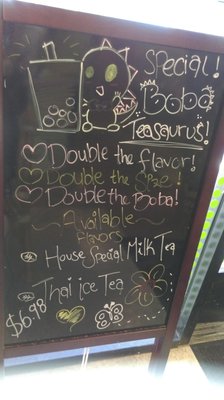 Special!
Boba
Teasaurus!
Double the flavor!
Double the Size!
Double the Boba!
Available
flavors
House Special Milk Tea
Thai ice Tea
$6.98